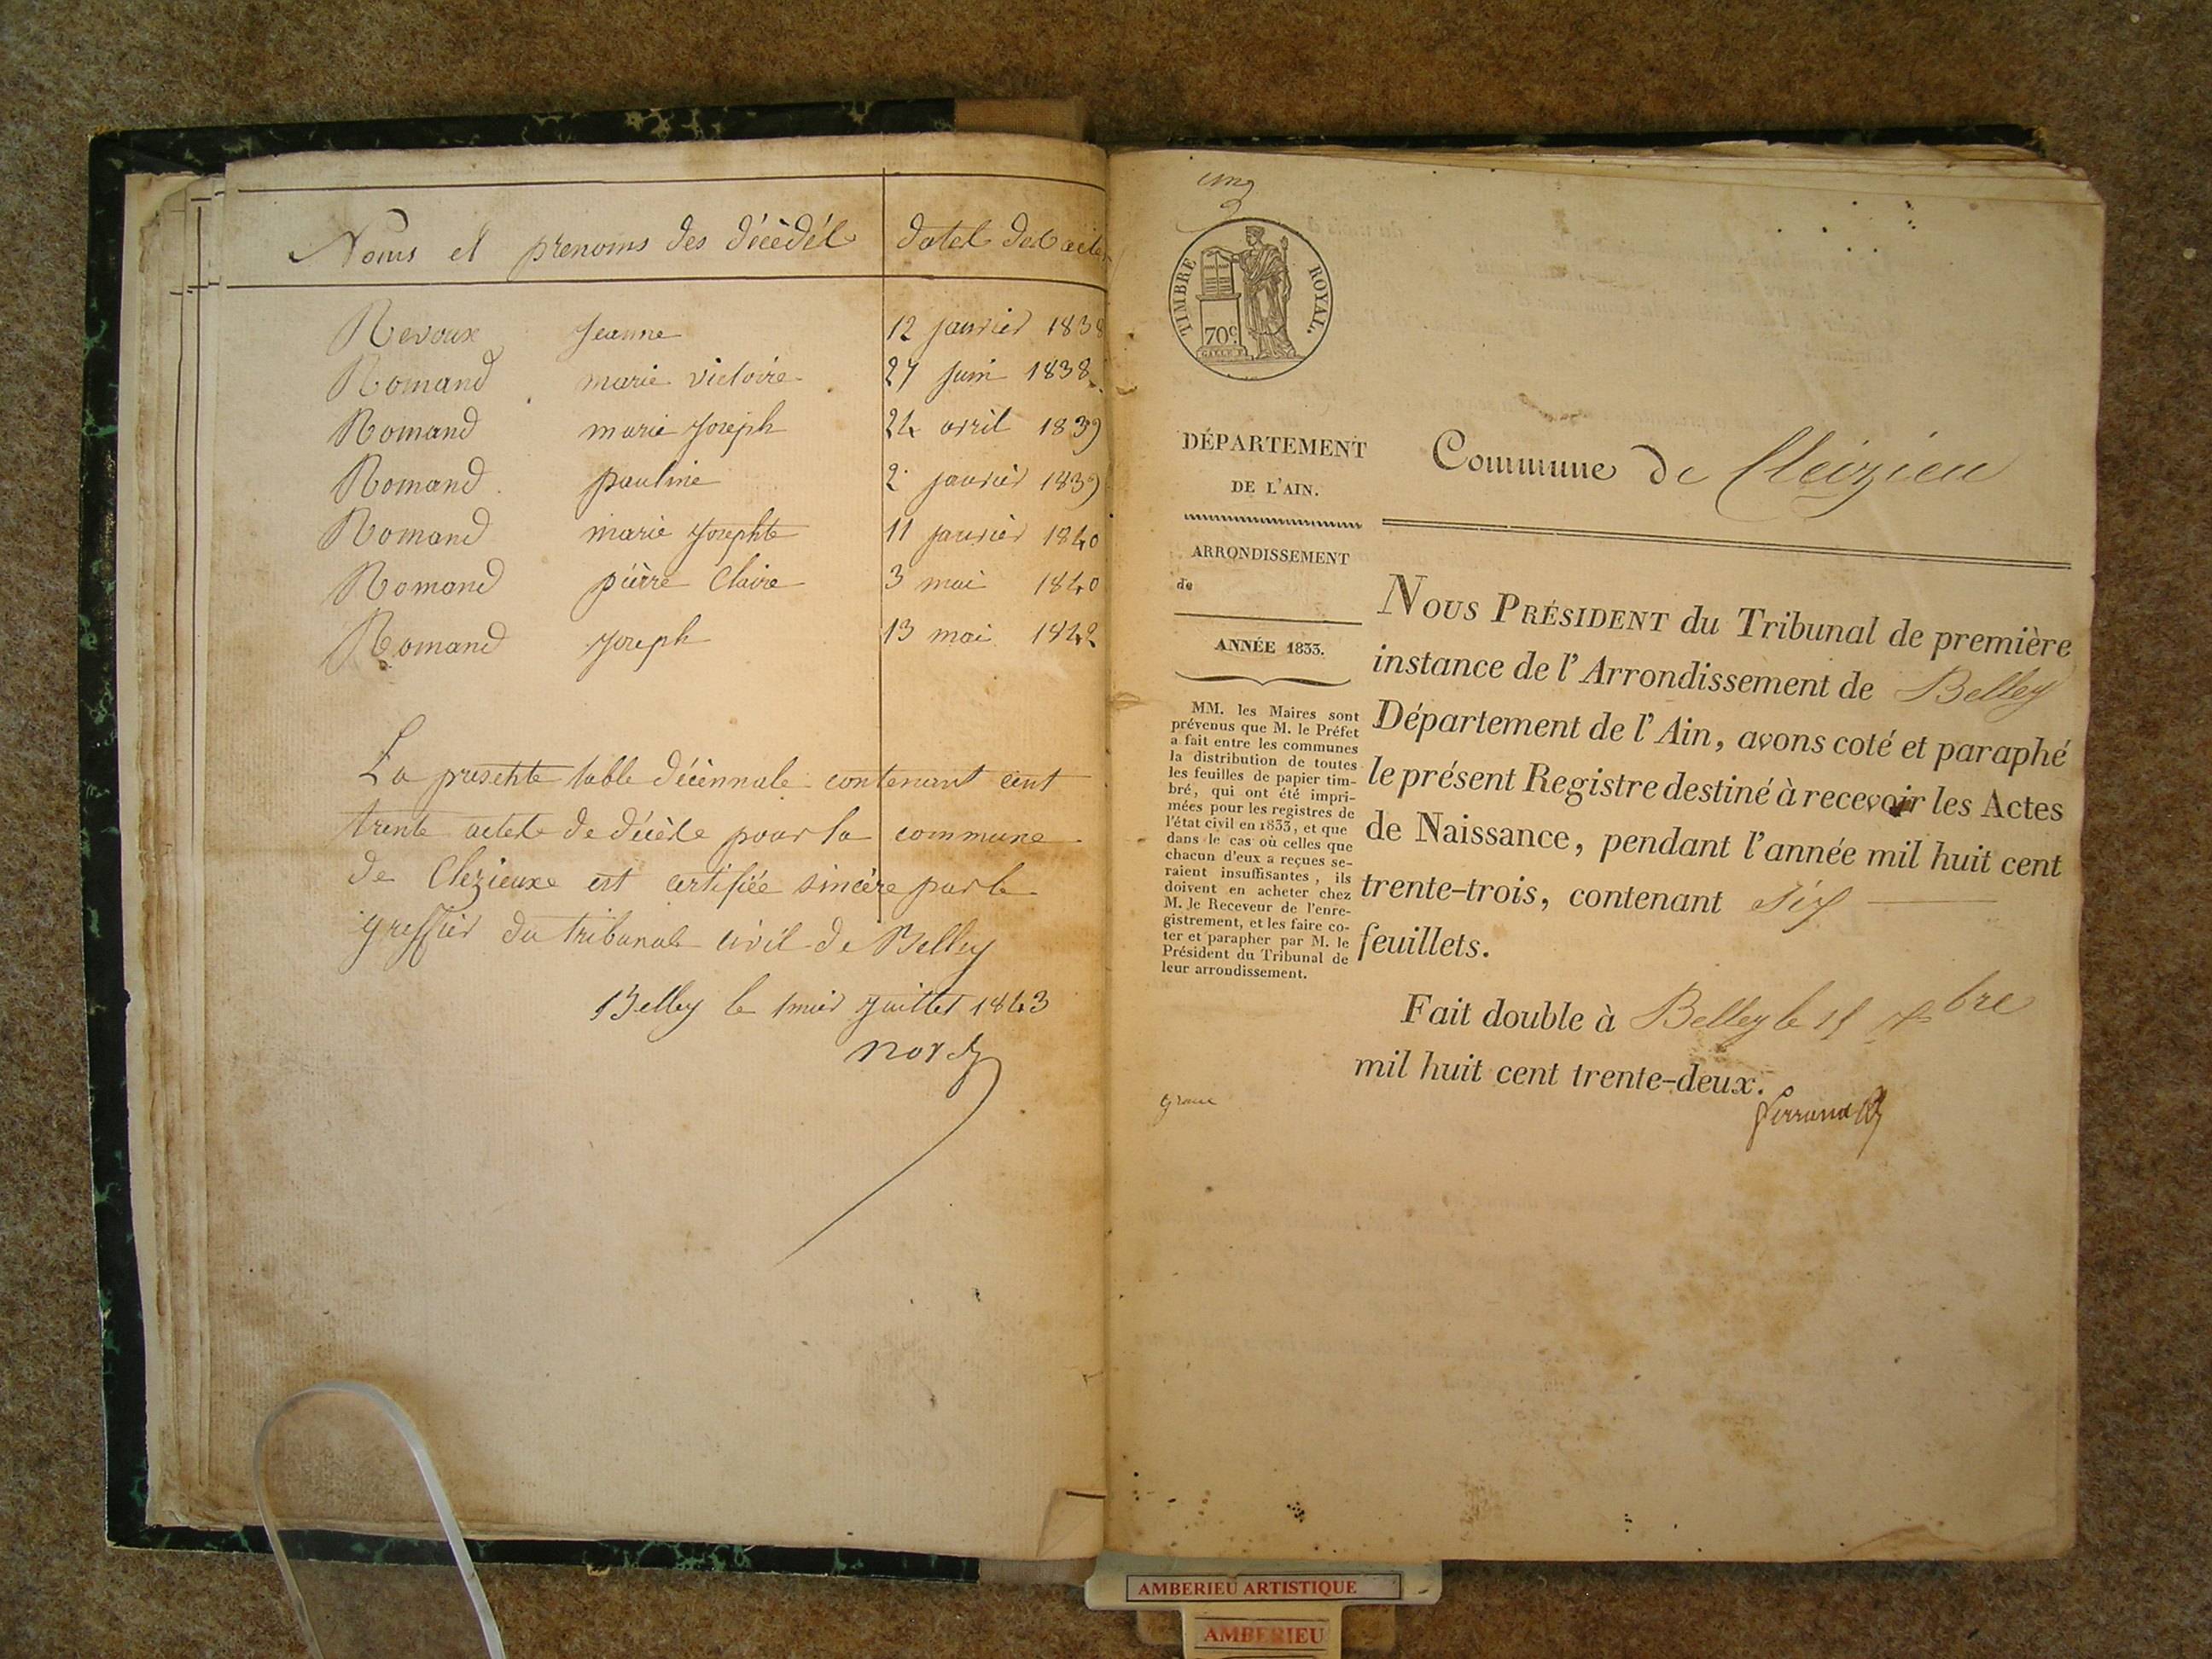 Noms et prenoms des décédés dates des actes
Revoux Jeanne 12 janvier 1838
Romand marie victoire 27 juin 1838
Romand marie joseph 24 avril 1839
Romand pauline 2 janvier 1839
Romand marie josephte 11 janvier 1840
Romand pièrre Claire 3 mai 1840
Romand joseph 13 mai 1842
La presente table décennale contenant cent
trente actes de décès pour la commune
de Clezieux est certifiée sincère par le
greffier du tribunal civil de Belley
Belley le 1mier juillet 1843
TIMBRE ROYAL.
70c.
DÉPARTEMENT
DE L'AIN.
ARRONDISSEMENT
de
ANNÉE 1833.
MM. les Maires sont
prévenus que M. le Préfet
a fait entre les communes
la distribution de toutes
les feuilles de papier tim-
bré, qui ont été impri-
mées pour les registres de
l'état civil en 1833, et que
dans le cas où celles que
chacun d'eux a reçues se-
raient insuffisantes, ils
doivent en acheter chez
M. le Receveur de l'enre-
gistrement, et les faire co-
ter et parapher par M. le
Président du Tribunal de
leur arrondissement.
Commune de Cleizieu
NOUS PRÉSIDENT du Tribunal de première
instance de l'Arrondissement de Belley
Département de l'Ain, avons coté et paraphé
le présent Registre destiné à recevoir les Actes
de Naissance, pendant l'année mil huit cent
trente-trois, contenant six
feuillets.
Fait double à Belley le 15 xbre
mil huit cent trente-deux.
AMBERIEU ARTISTIQUE
AMBERIEU